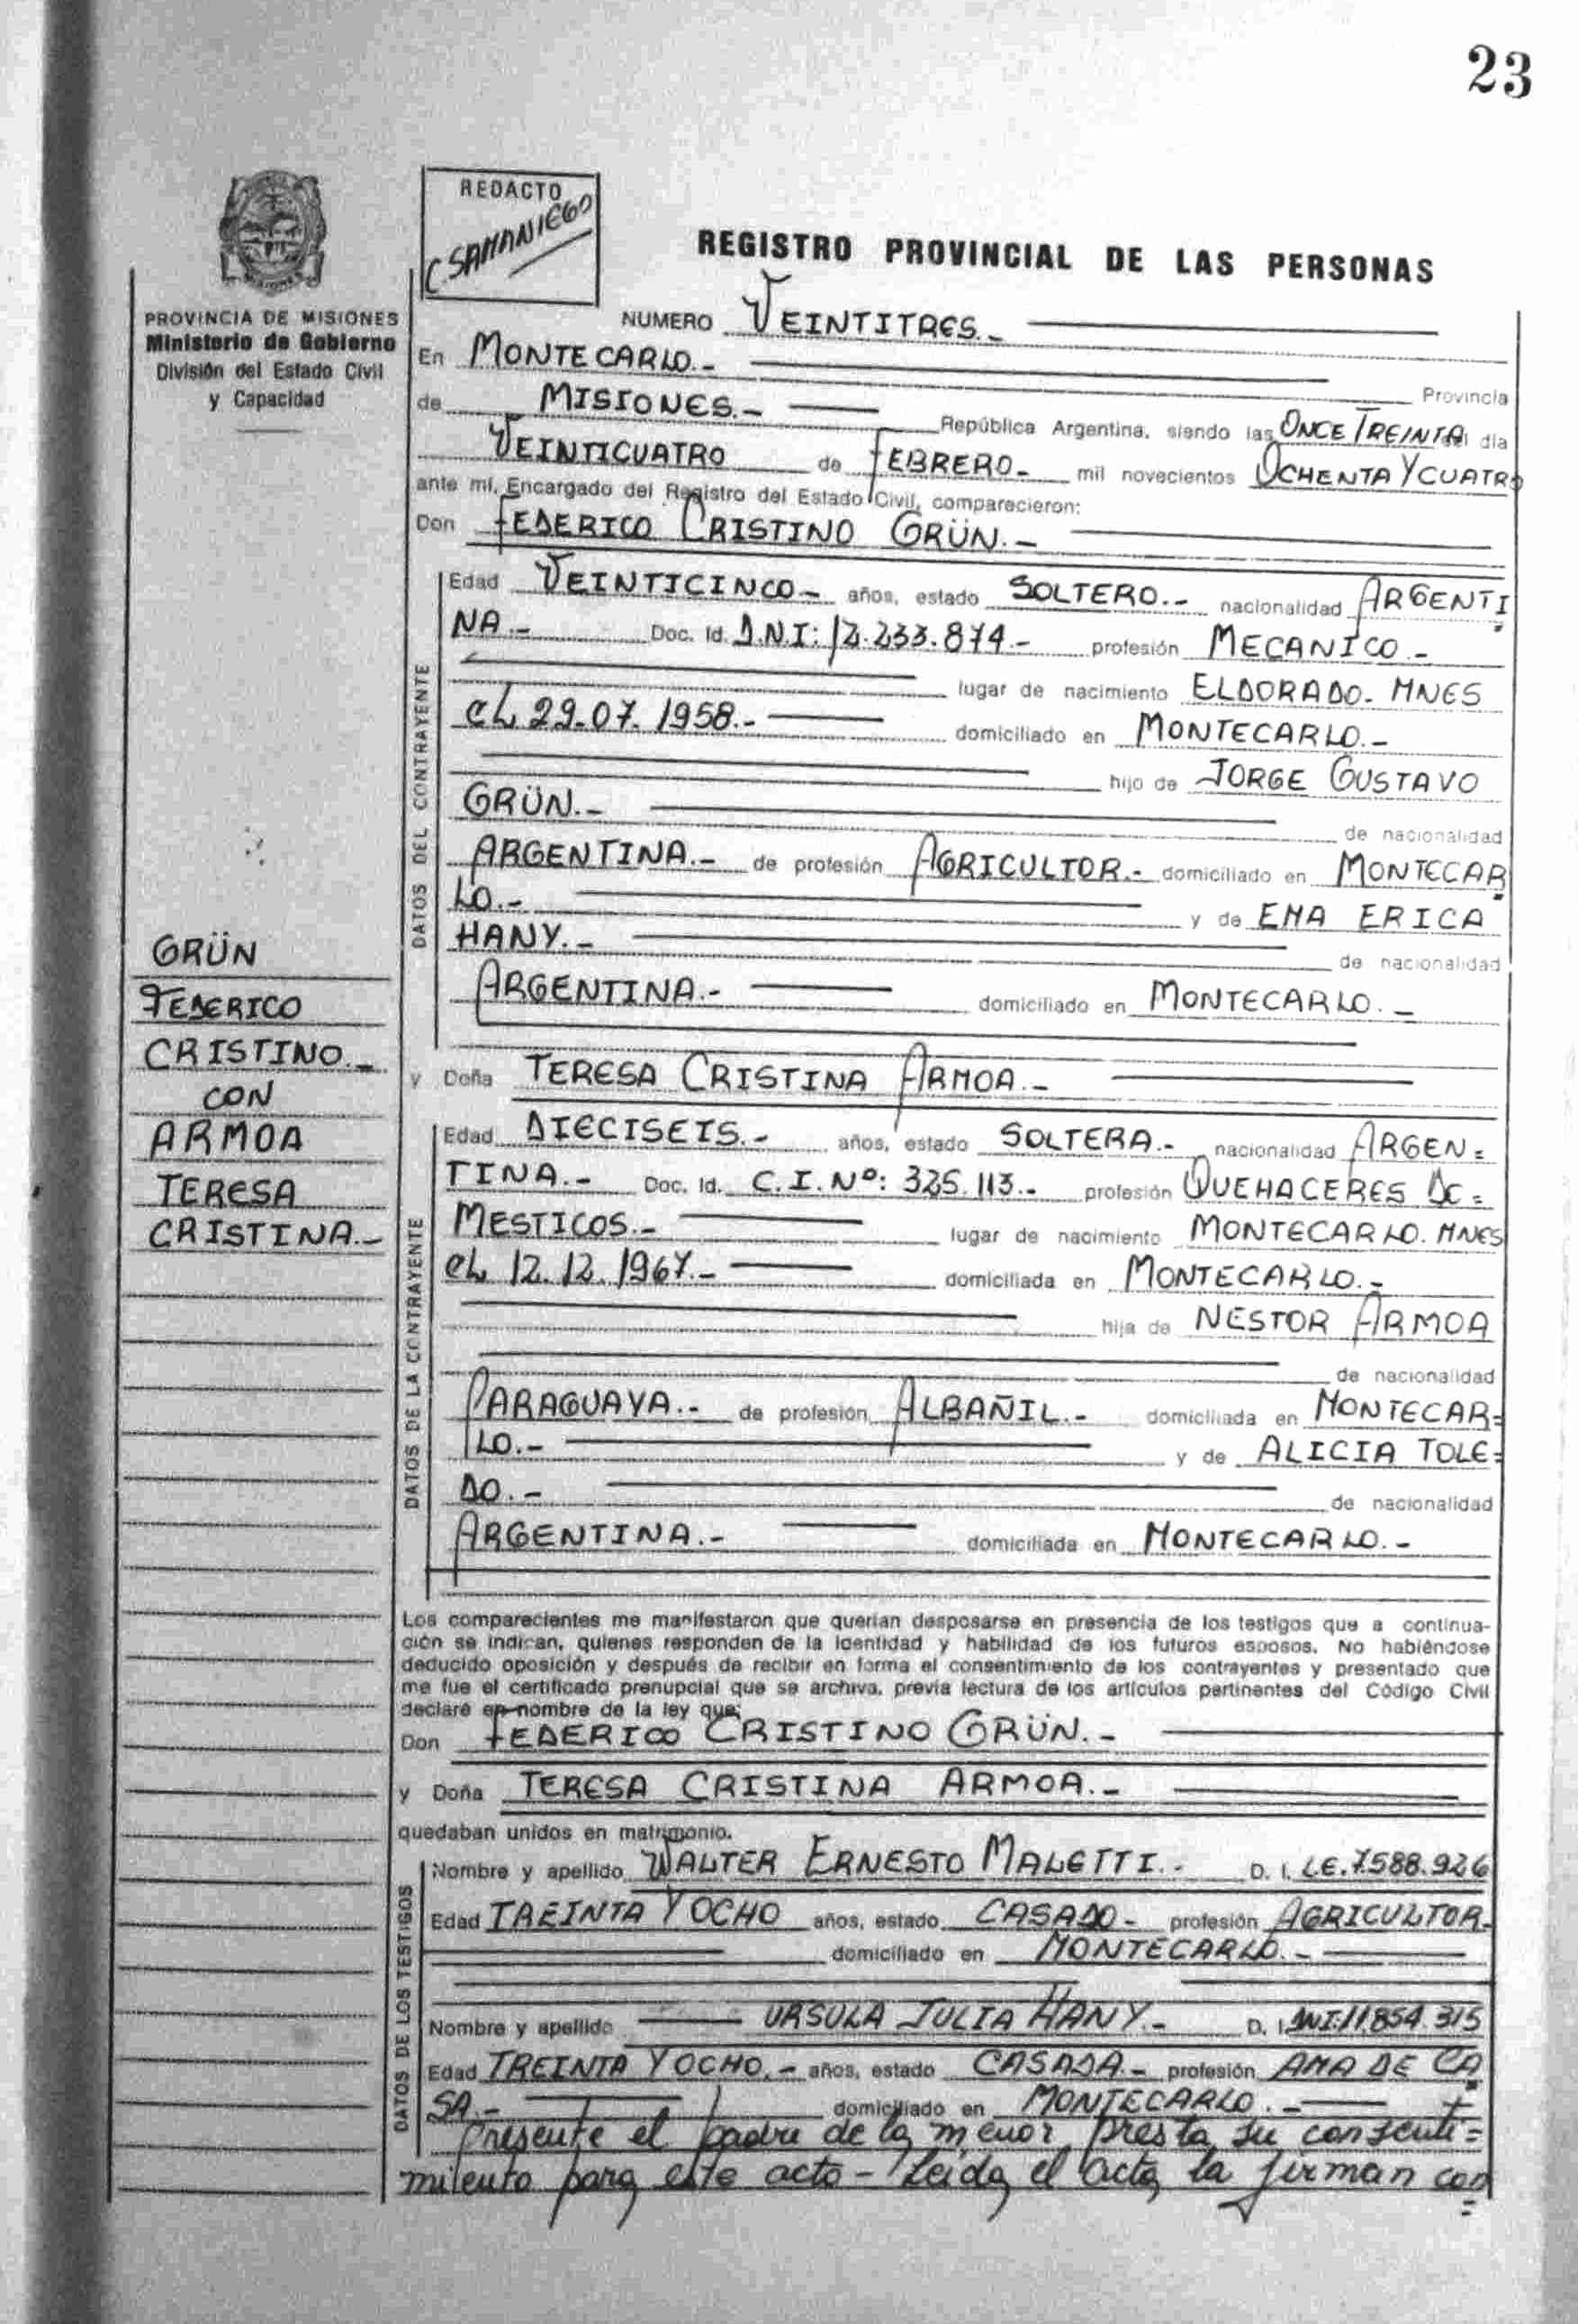 23
REDACTO
C. SAMANIEGO
REGISTRO PROVINCIAL DE LAS PERSONAS
PROVINCIA DE MISIONES
Ministerio de Gobierno
División del Estado Civil
y Capacidad
NUMERO VEINTITRES.-
En MONTECARLO.-
Provincia
de MISIONES.- República Argentina, siendo las ONCE TREINTA del día
VEINTICUATRO de FEBRERO- mil novecientos OCHENTA Y CUATRO
ante mí, Encargado del Registro del Estado Civil, comparecieron:
Don FEDERICO CRISTINO GRÜN.-
DATOS DEL CONTRAYENTE
Edad VEINTICINCO- años, estado SOLTERO.- nacionalidad ARGENTI
NA.- Doc. Id. D.N.I: 12.233.874.- profesión MECANICO.-
lugar de nacimiento ELDORADO- MNES
EL 29-07-1958.- domiciliado en MONTECARLO.-
hijo de JORGE GUSTAVO
GRÜN.- de nacionalidad
ARGENTINA.- de profesión AGRICULTOR.- domiciliado en MONTECAR
LO.- y de EMA ERICA
HANY.- de nacionalidad
ARGENTINA.- domiciliado en MONTECARLO.-
GRÜN
FEDERICO
CRISTINO.-
CON
ARMOA
TERESA
CRISTINA.-
y Doña TERESA CRISTINA ARMOA.-
DATOS DE LA CONTRAYENTE
Edad DIECISEIS.- años, estado SOLTERA.- nacionalidad ARGEN=
TINA.- Doc. Id. C.I.Nº: 325.113.- profesión QUEHACERES DE=
MESTICOS.- lugar de nacimiento MONTECARLO. MNES
EL 12.12.1967.- domiciliada en MONTECARLO.-
hija de NESTOR ARMOA
de nacionalidad
PARAGUAYA.- de profesión ALBAÑIL.- domiciliada en MONTECAR=
LO.- y de ALICIA TOLE=
DO.- de nacionalidad
ARGENTINA.- domiciliada en MONTECARLO.-
Los comparecientes me manifestaron que querían desposarse en presencia de los testigos que a continua-
ción se indican, quienes responden de la identidad y habilidad de los futuros esposos. No habiéndose
deducido oposición y después de recibir en forma el consentimiento de los contrayentes y presentado que
me fue el certificado prenupcial que se archiva, previa lectura de los artículos pertinentes del Código Civil
declaré en nombre de la ley que:
Don FEDERICO CRISTINO GRÜN.-
y Doña TERESA CRISTINA ARMOA.-
quedaban unidos en matrimonio.
DATOS DE LOS TESTIGOS
Nombre y apellido WALTER ERNESTO MALETTI.- D. I. LE.7.588.926
Edad TREINTA Y OCHO años, estado CASADO- profesión AGRICULTOR-
domiciliado en MONTECARLO.-
Nombre y apellido URSULA JULIA HANY.- D. I. DNI.11.854.315
Edad TREINTA Y OCHO.- años, estado CASADA.- profesión AMA DE CA
SA.- domiciliado en MONTECARLO.-
Presente el padre de la menor presta su consenti=
miento para este acto - Leida el acta la firman con